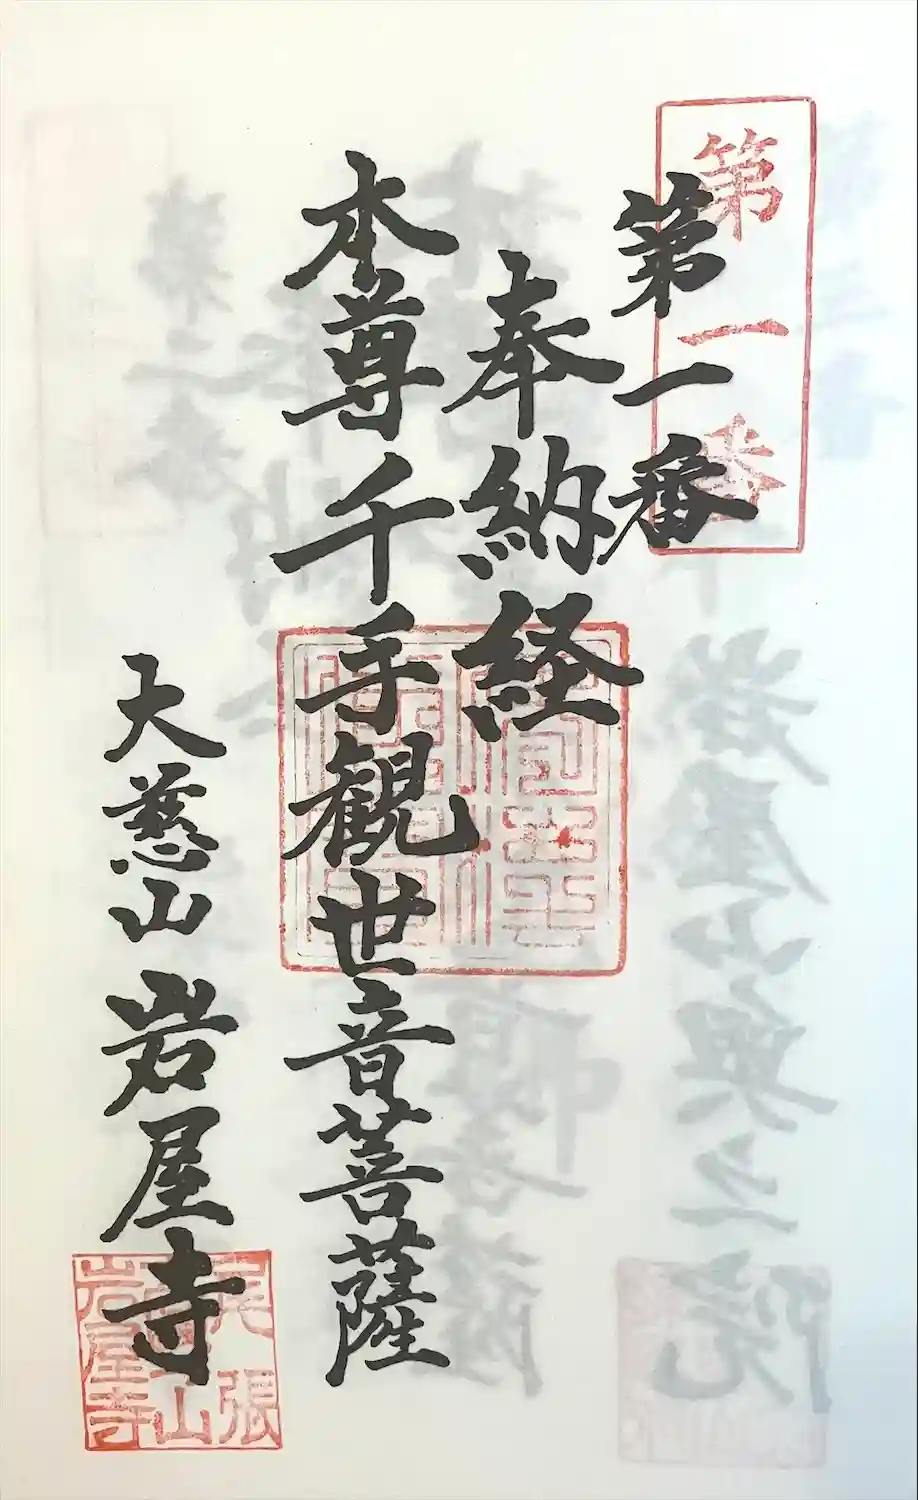 第一番
第一番
奉納経
本尊千手観世音菩薩
大慈山 岩屋寺
尾張
岩屋寺